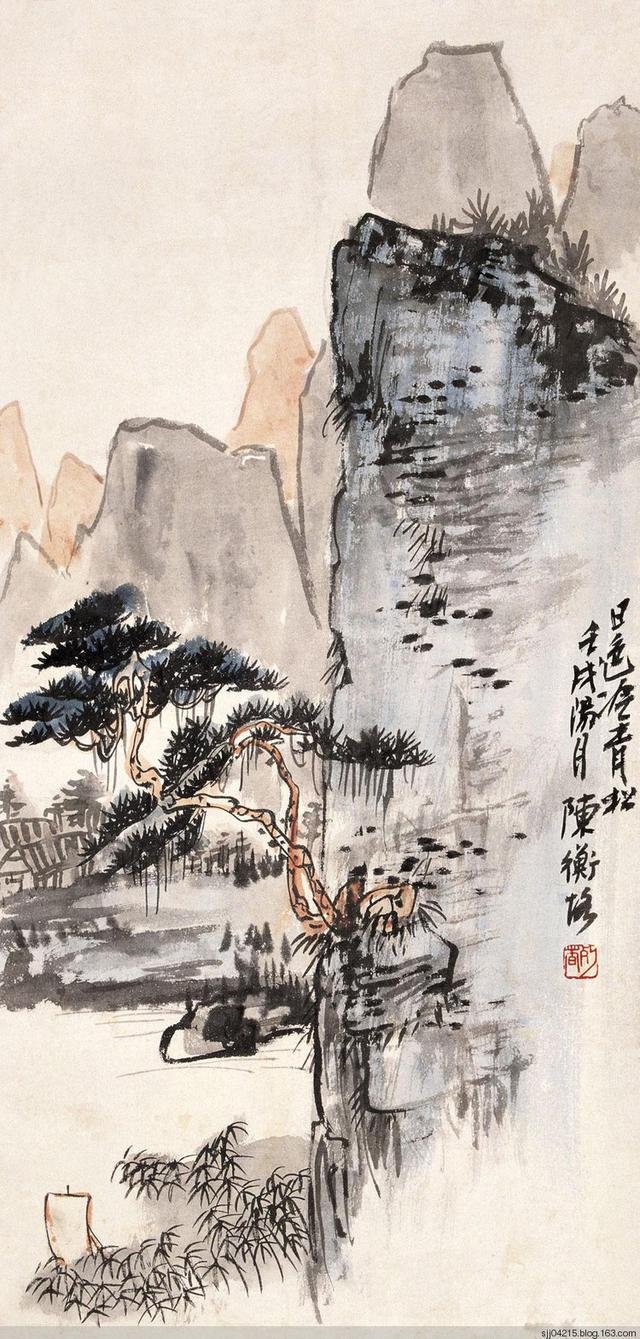 日色冷青松
壬戌陽月 陳衡恪
sjj04215.blog.163.com